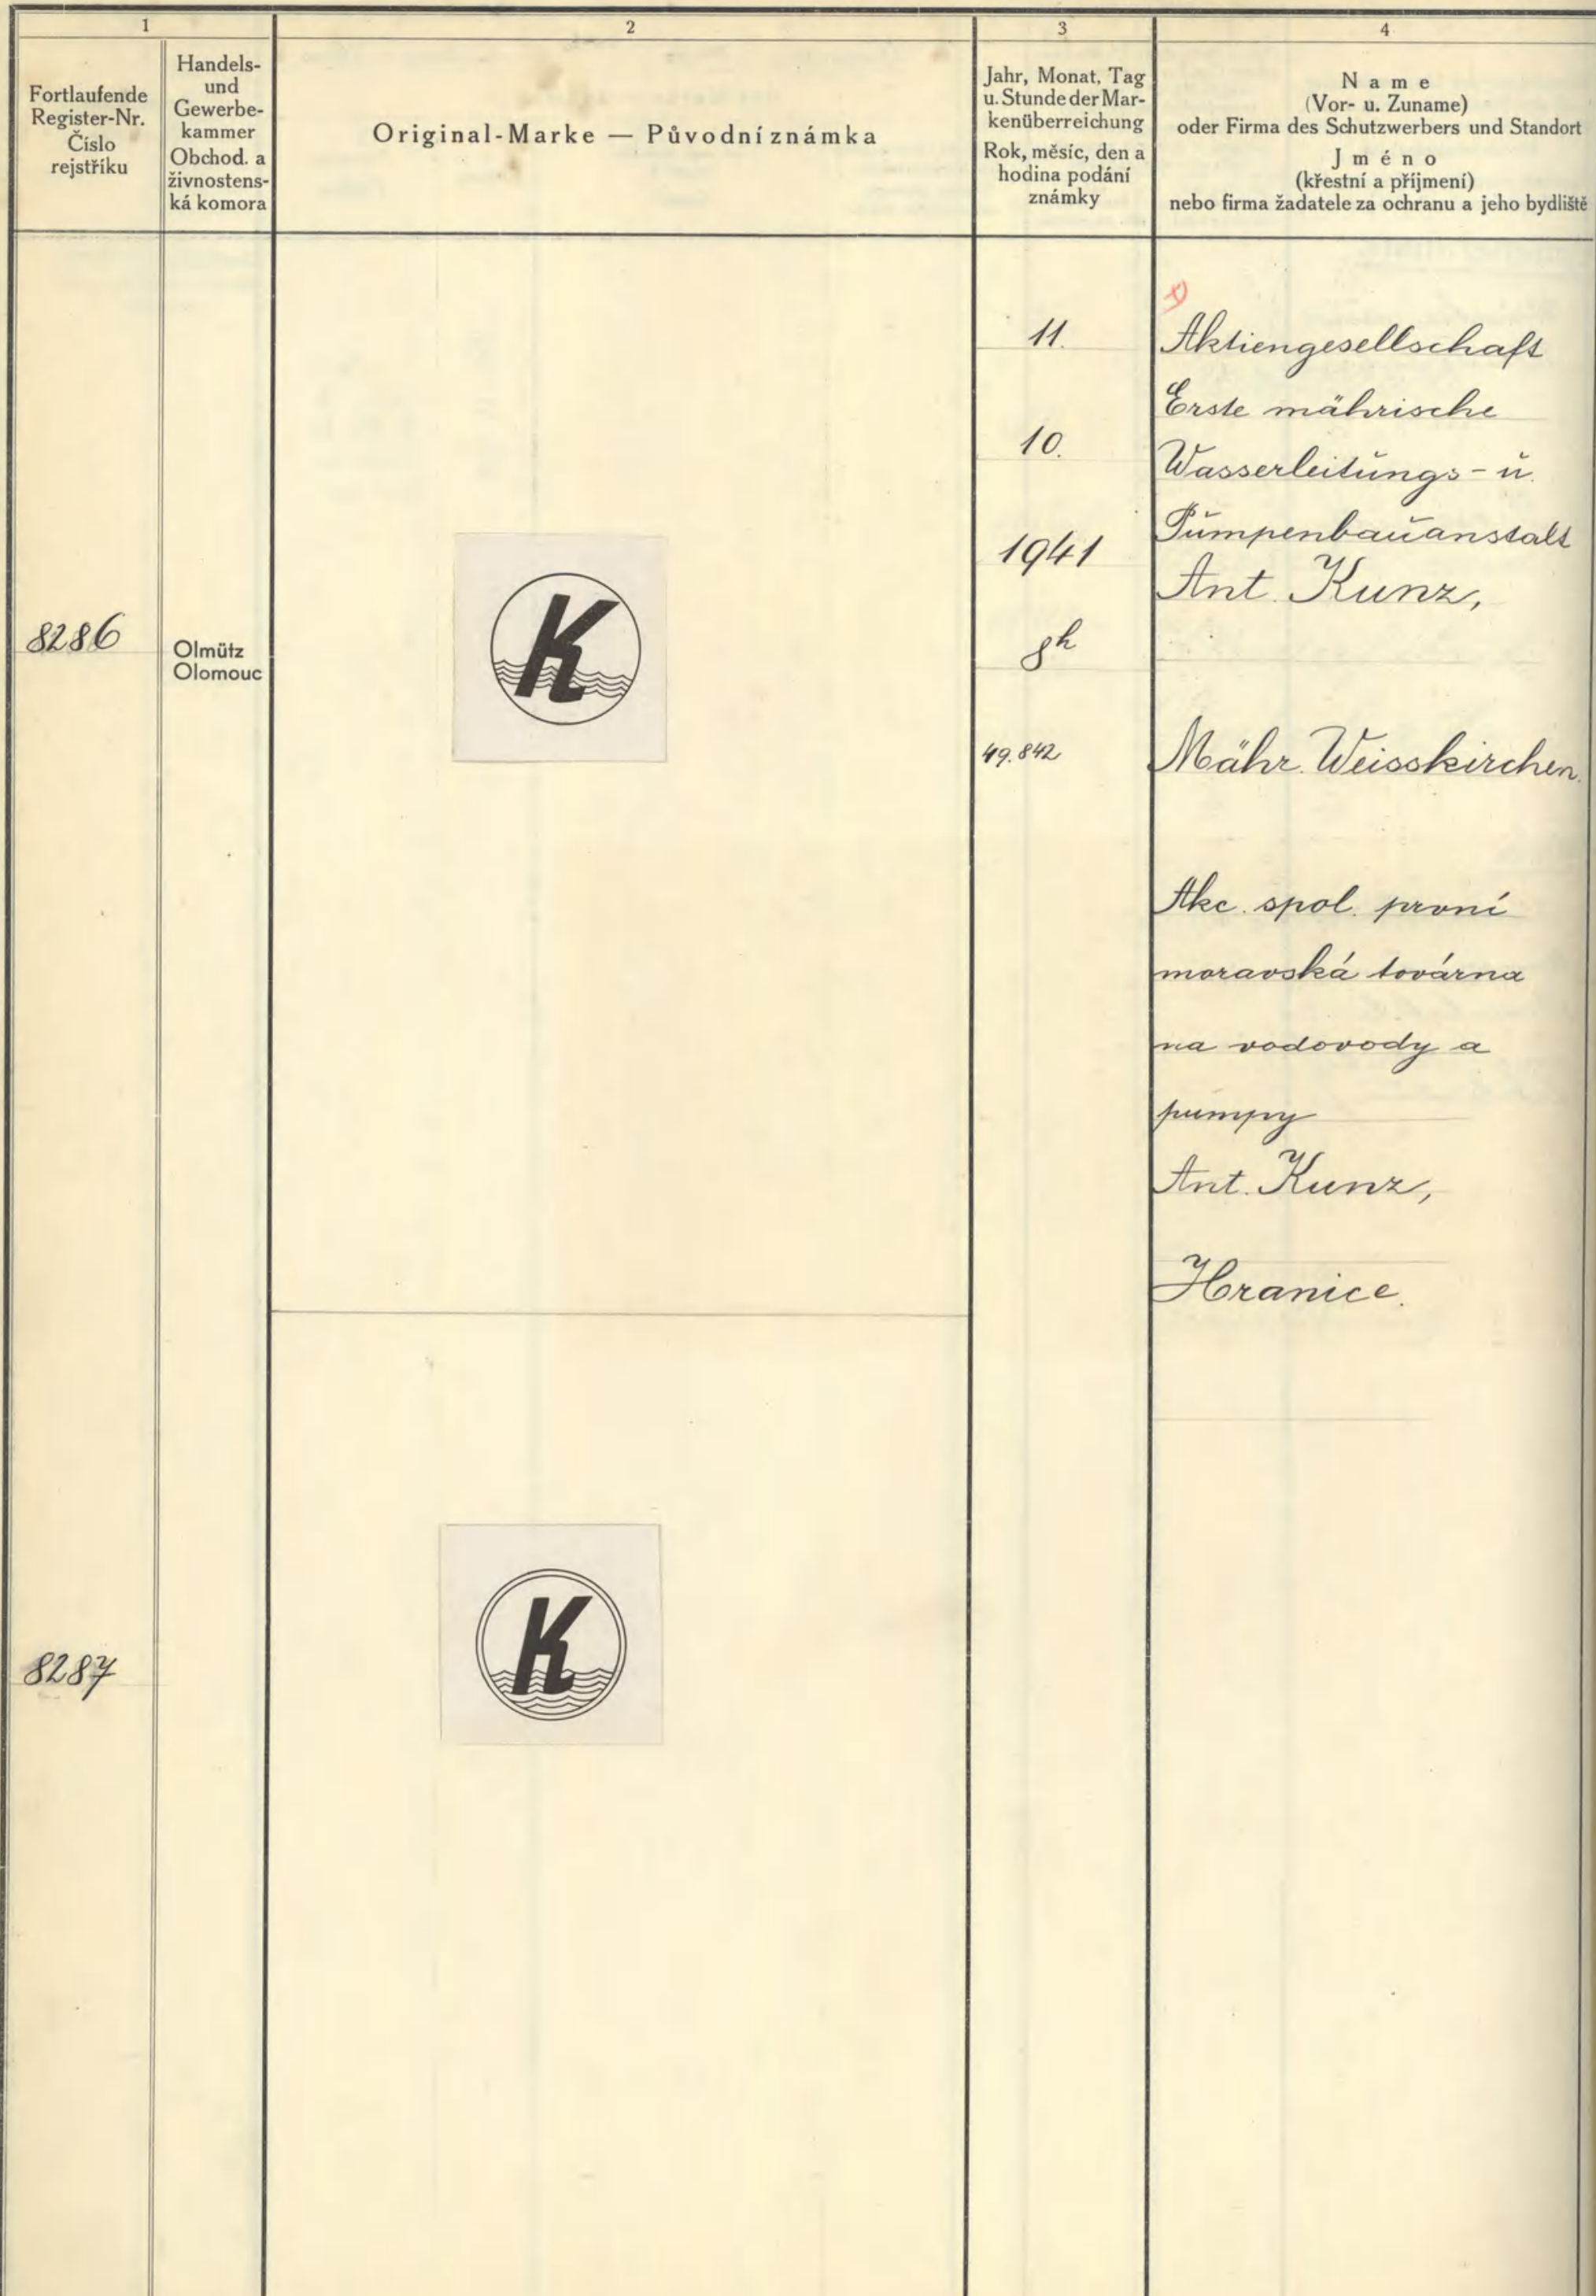 1
2
3
4
Fortlaufende
Register-Nr.
Číslo
rejstříku
Handels-
und
Gewerbe-
kammer
Obchod. a
živnostens-
ká komora
Original-Marke — Původní známka
Jahr, Monat, Tag
u. Stunde der Mar-
kenüberreichung
Rok, měsíc, den a
hodina podání
známky
Name
(Vor- u. Zuname)
oder Firma des Schutzwerbers und Standort
Jméno
(křestní a příjmení)
nebo firma žadatele za ochranu a jeho bydliště
8286
Olmütz
Olomouc
K
11.
10.
1941
8h
49.842
Aktiengesellschaft
Erste mährische
Wasserleitungs- u.
Pumpenbauanstalt
Ant. Kunz,
Mähr. Weisskirchen.
Akc. spol. první
moravská továrna
na vodovody a
pumpy
Ant. Kunz,
Hranice.
8287
K